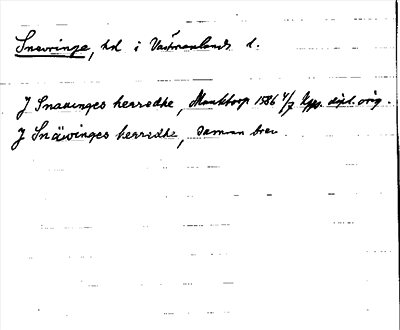 Snevringe, hd i Västmanlands l.
J Snauinges herredhe, Munktorp 1586 4/7 Upps. dipl. orig.
J Snäwinges herredhe, samma brev